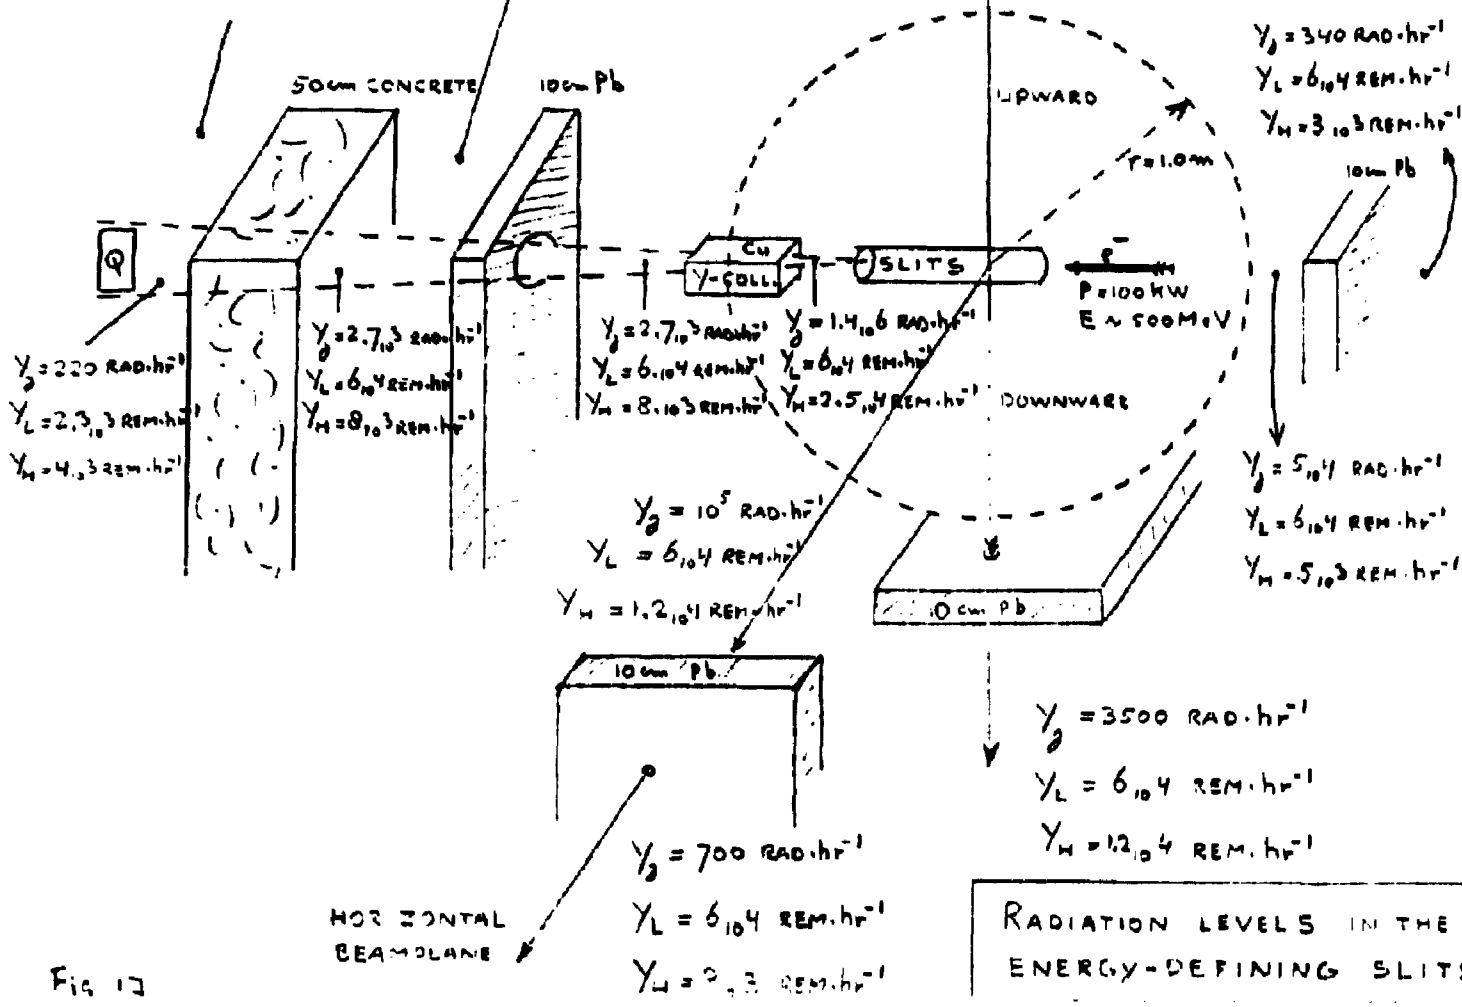 Yγ = 340 RAD.hr⁻¹
Y_L = 6₁₀4 REM.hr⁻¹
Y_H = 3₁₀3 REM.hr⁻¹
50cm CONCRETE
10cm Pb
UPWARD
r=1.0m
10cm Pb
Q
Cu
γ-COLL.
SLITS
e⁻
P=100kW
E~500MeV
Yγ = 220 RAD.hr⁻¹
Y_L = 2.3₁₀3 REM.hr⁻¹
REM.hr⁻¹
Yγ = 2.7₁₀3 RAD.hr⁻¹
Y_L = 6₁₀4 REM.hr⁻¹
Y_H = 8₁₀3 REM.hr⁻¹
Yγ = 2.7₁₀3 RAD.hr⁻¹
Y_L = 6₁₀4 REM.hr⁻¹
Y_H = 8₁₀3 REM.hr⁻¹
Yγ = 1.4₁₀6 RAD.hr⁻¹
Y_L = 6₁₀4 REM.hr⁻¹
Y_H = 2.5₁₀4 REM.hr⁻¹
DOWNWARD
Yγ = 5₁₀4 RAD.hr⁻¹
Y_L = 6₁₀4 REM.hr⁻¹
Y_H = 5₁₀3 REM.hr⁻¹
Yγ = 10⁵ RAD.hr⁻¹
Y_L = 6₁₀4 REM.hr⁻¹
Y_H = 1.2₁₀4 REM.hr⁻¹
10cm Pb
10cm Pb
Yγ = 3500 RAD.hr⁻¹
Y_L = 6₁₀4 REM.hr⁻¹
Y_H = 1.2₁₀4 REM.hr⁻¹
Yγ = 700 RAD.hr⁻¹
Y_L = 6₁₀4 REM.hr⁻¹
REM.hr⁻¹
HORIZONTAL
BEAMPLANE
RADIATION LEVELS IN THE
ENERGY-DEFINING SLITS
Fig